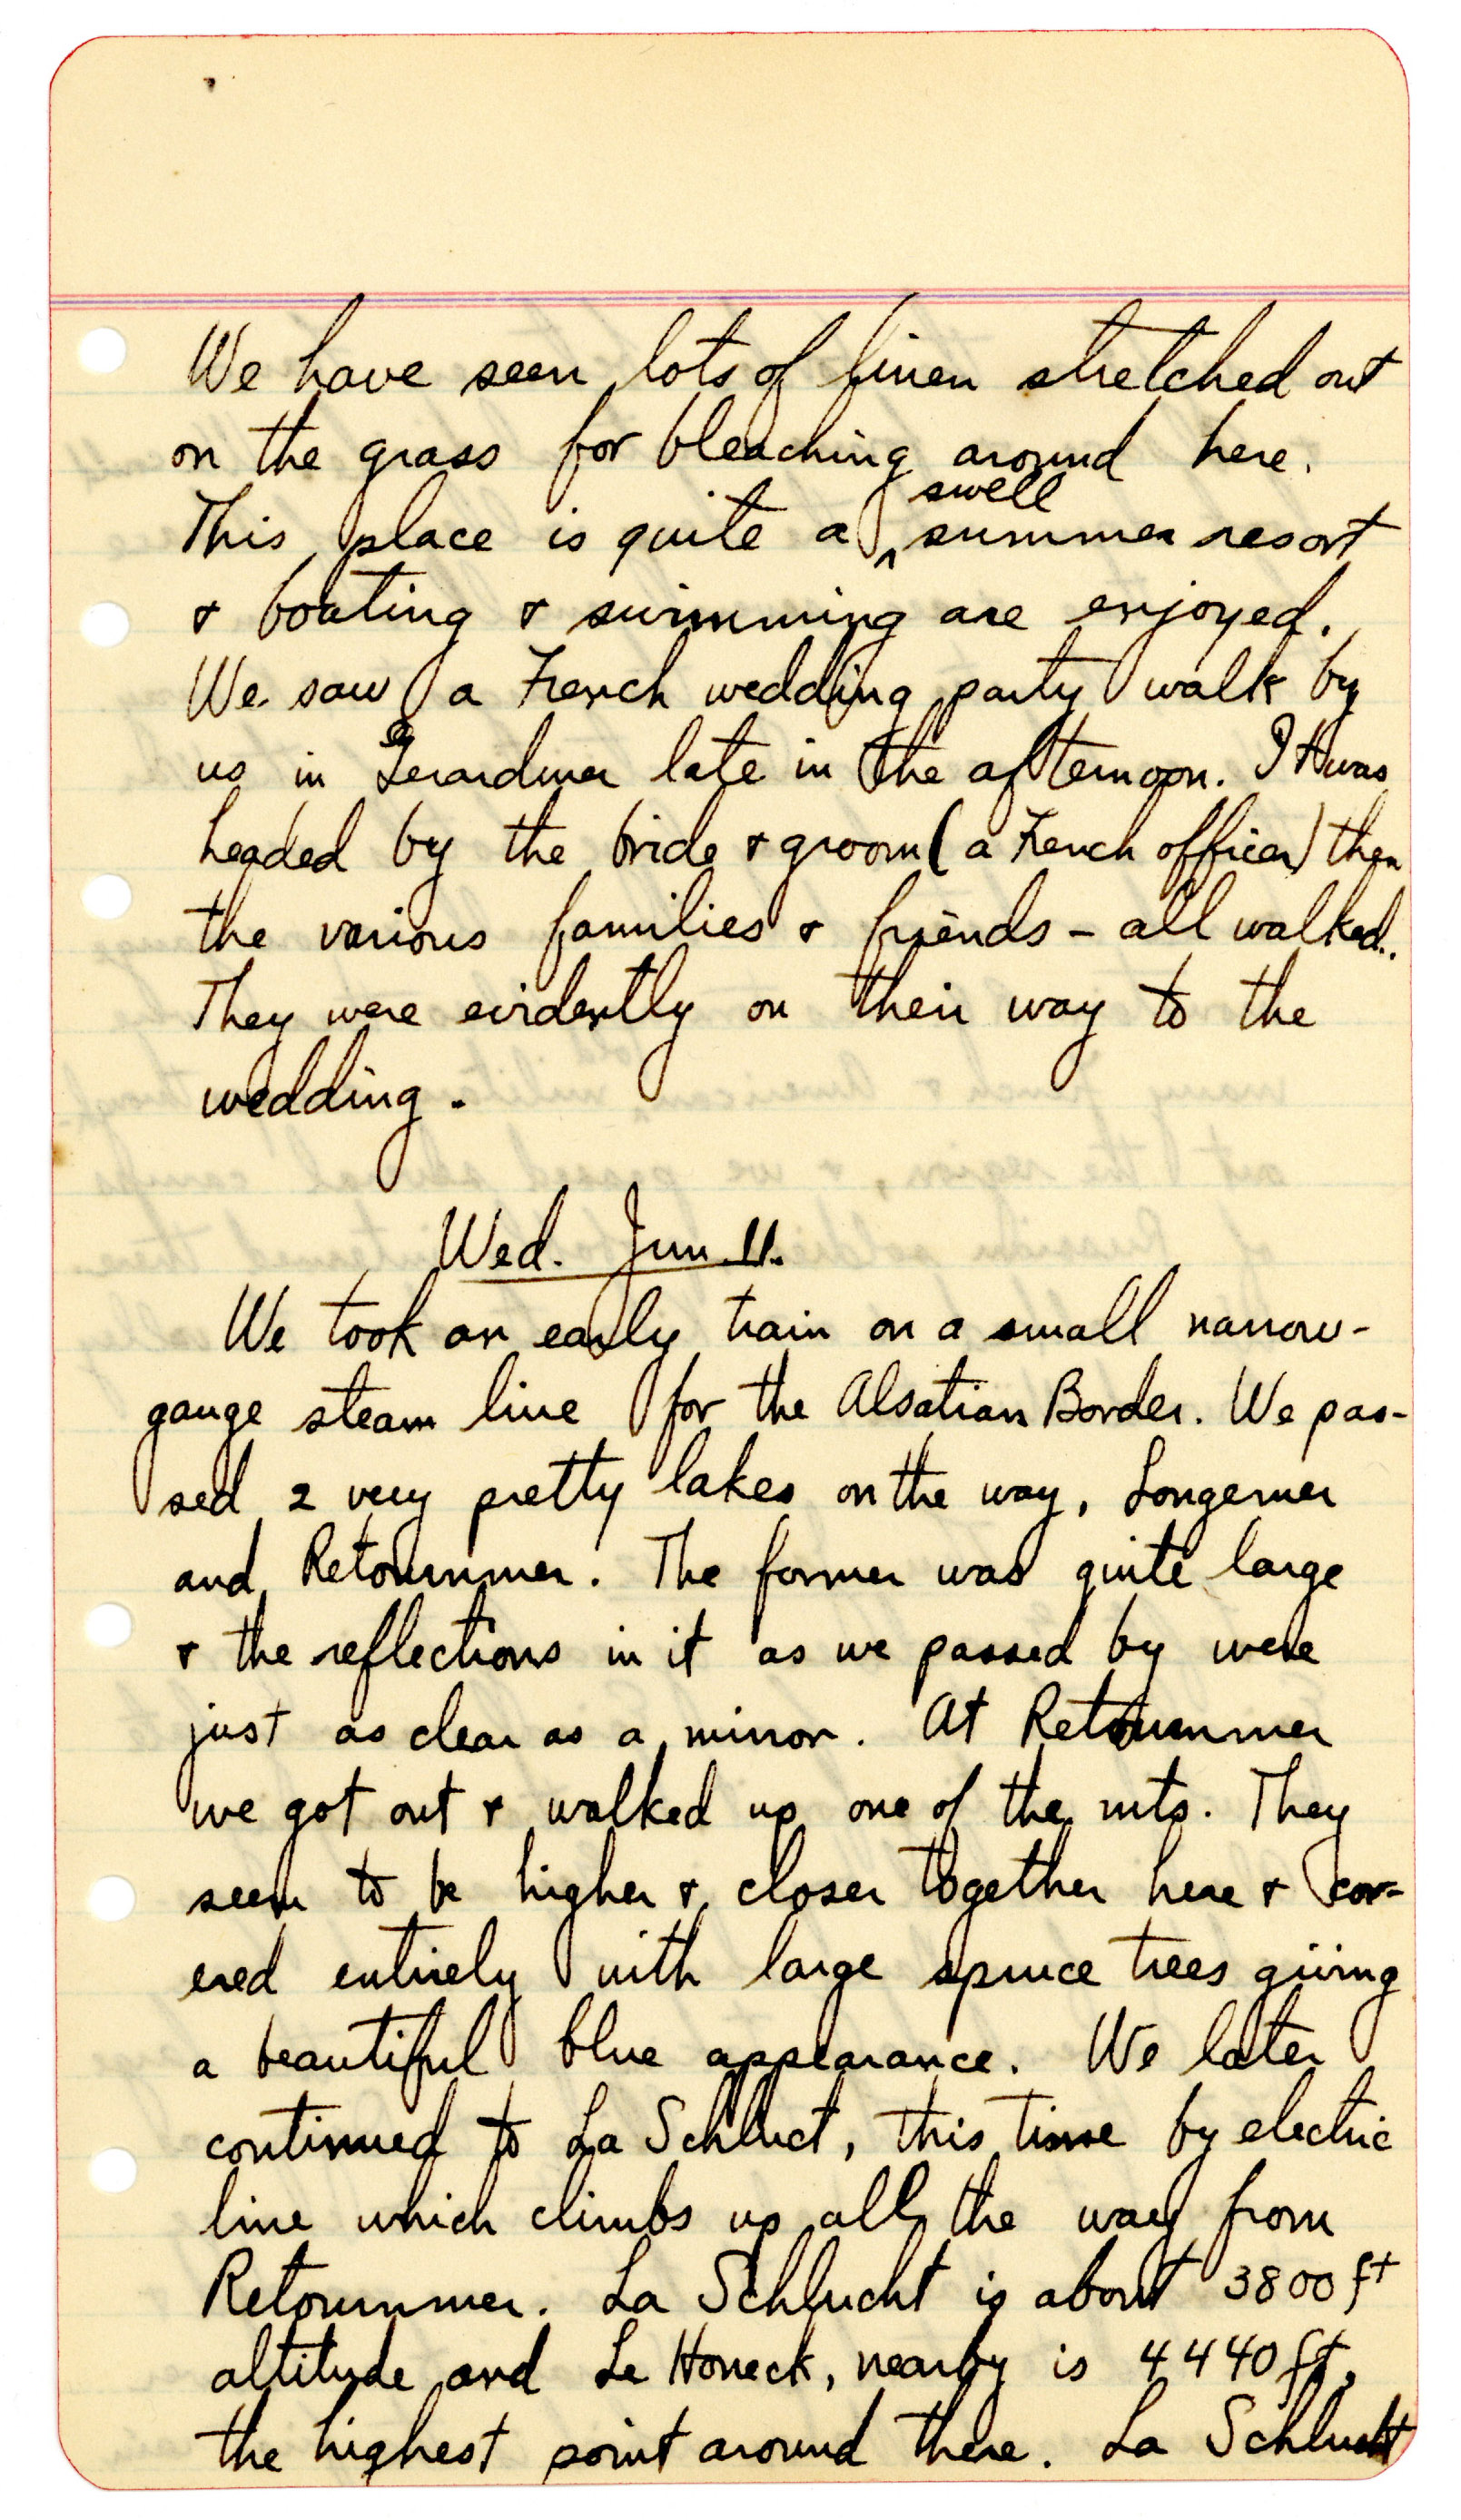 We have seen lots of linen stretched out
on the grass for bleaching around here.
This place is quite a ^ swell summer resort
+ boating + swimming are enjoyed.
We saw a French wedding party walk by
us in Gerardmer late in the afternoon. It was
headed by the bride + groom (a French officer) then
the various families + friends - all walked.
They were evidently on their way to the
wedding.
Wed. Jun 11.
We took an early train on a small narrow-
gauge steam line for the Alsatian Border. We pas-
sed 2 very pretty lakes on the way, Longemer
and Retournmer. The former was quite large
+ the reflections in it as we passed by were
just as clear as a mirror. At Retournmer
we got out + walked up one of the mts. They
seem to be higher + closer together here + cov-
ered entirely with large spruce trees giving
a beautiful blue appearance. We later
continued to La Schluct, this time by electric
line which climbs up all the way from
Retournmer. La Schlucht is about 3800 ft
altitude and Le Honeck, nearby is 4440 ft,
the highest point around there. La Schlucht